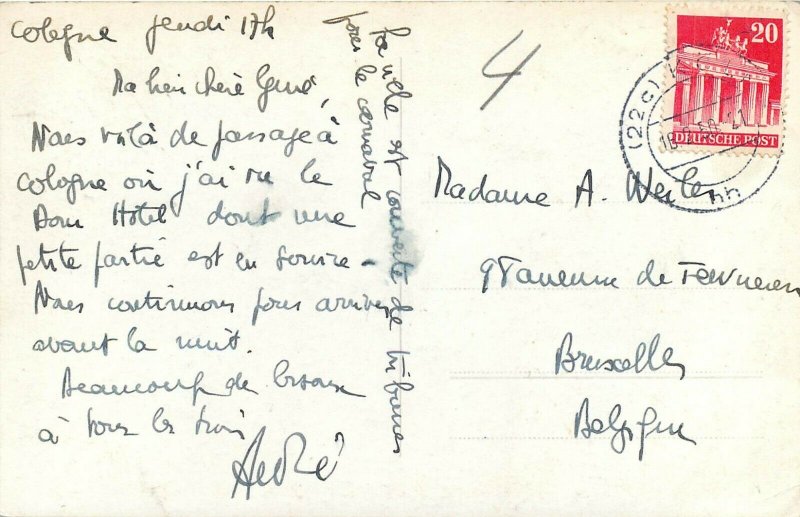 Cologne jeudi 17h
Ma bien chère
Nous voilà de passage à
Cologne où j'ai vu le
Dom Hotel dont une
petite partie est en service -
Nous continuons pour arriver
avant la nuit.
Beaucoup de bisous
à tous les trois
André
La ville est couverte de tribunes
pour le carnaval
4
20
DEUTSCHE POST
(22c)
Madame A.
avenue de Tervueren
Bruxelles
Belgique